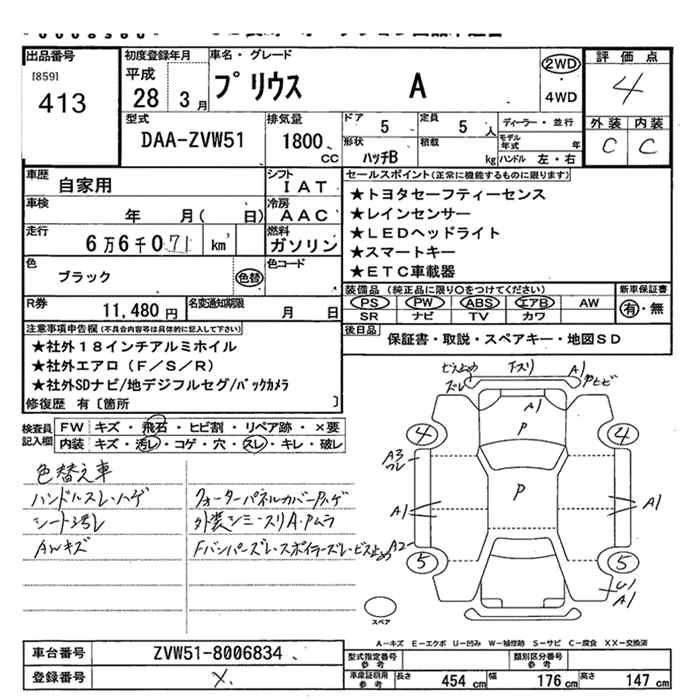 出品番号
[859]
413
初度登録年月
平成
28 3月
車名・グレード
プリウス A
2WD
・
4WD
評価点
4
外装 内装
C C
型式
DAA-ZVW51
排気量
1800 cc
ドア 5
定員 5人
形状 ハッチB
積載 kg
ディーラー・並行
モデル年式 年
ハンドル 左・右
車歴
自家用
シフト
IAT
車検
年 月( 日)
冷房
AAC
走行
6万6千071 km
燃料
ガソリン
色
ブラック
色替
色コード
R券
11,480円
名変通知期限
月 日
セールスポイント(正常に機能するものに限ります)
★トヨタセーフティーセンス
★レインセンサー
★LEDヘッドライト
★スマートキー
★ETC車載器
装備品(純正品に限り○をつけてください)
新車保証書
PS PW ABS エアB AW
SR ナビ TV カワ
有・無
後日品
保証書・取説・スペアキー・地図SD
注意事項申告欄(不具合内容等は具体的に記入して下さい)
★社外18インチアルミホイル
★社外エアロ(F/S/R)
★社外SDナビ/地デジフルセグ/バックカメラ
修復歴 有〔箇所 〕
検査員記入欄
FW キズ・飛石・ヒビ割・リペア跡・×要
内装 キズ・汚レ・コゲ・穴・スレ・キレ・破レ
色替え車
ハンドルスレ・ハゲ
シート汚レ
AWキズ
クォーターパネルカバーP.ハゲ
外装シミ・スリA・Pムラ
Fバンパーズレ・スポイラーズレ・ビス止め
ビス止め
ズレ
A1
A1
P
4
4
A3
P
A1
A1
A2
5
5
U1
A1
スペア
A－キズ E－エクボ U－凹み W－補修跡 S－サビ C－腐食 XX－交換済
車台番号
ZVW51-8006834
登録番号
型式指定番号
参考
類別区分番号
参考
車庫証明用
参考
長さ 454 cm
幅 176 cm
高さ 147 cm